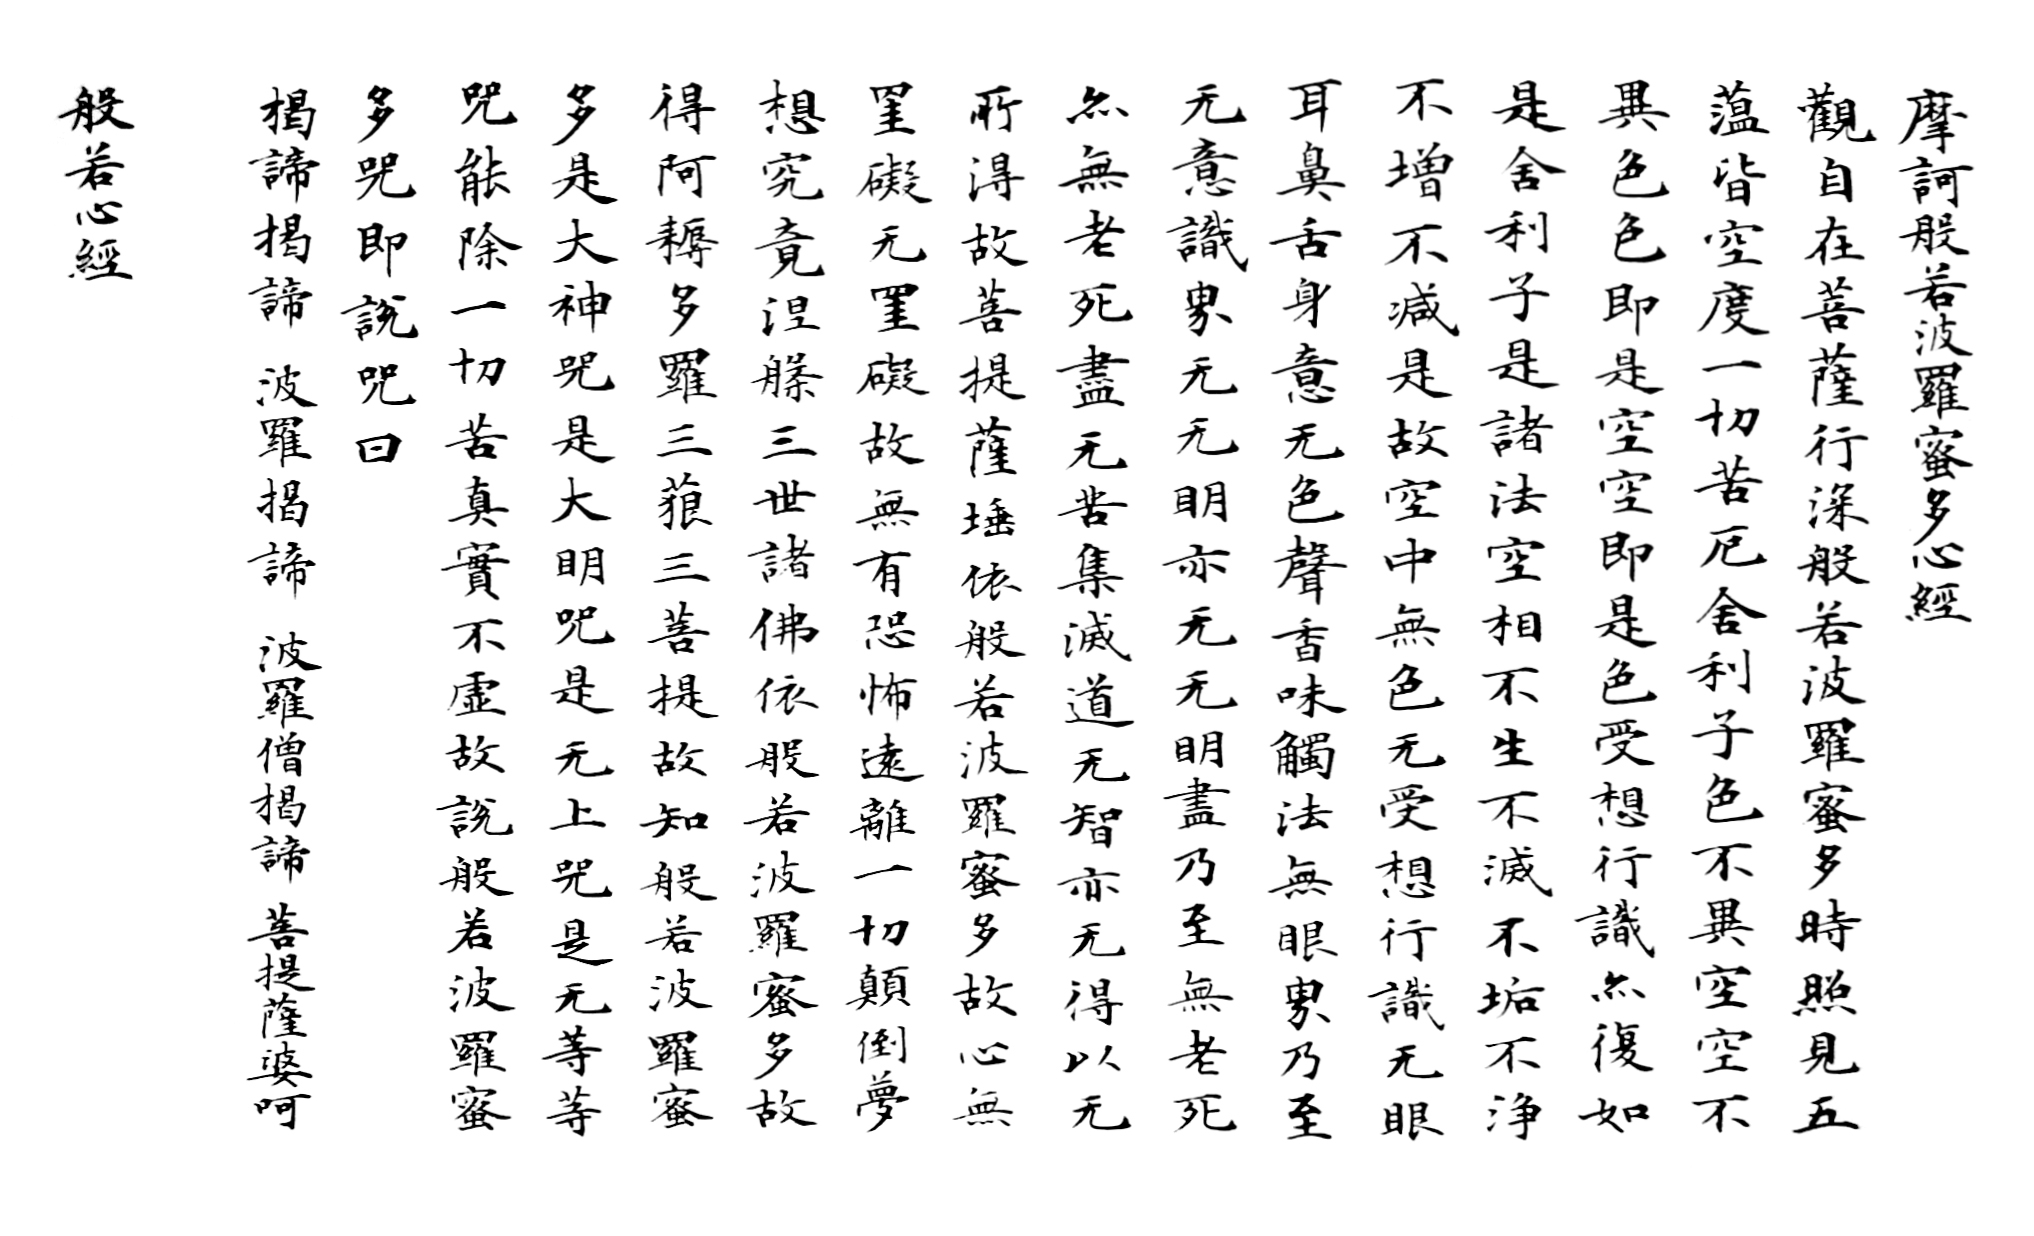 摩訶般若波羅蜜多心經
觀自在菩薩行深般若波羅蜜多時照見五
蕰皆空度一切苦厄舍利子色不異空空不
異色色即是空空即是色受想行識亦復如
是舍利子是諸法空相不生不滅不垢不浄
不增不減是故空中無色无受想行識无眼
耳鼻舌身意无色聲香味觸法無眼界乃至
无意識界无无明亦无无明盡乃至無老死
亦無老死盡无苦集滅道无智亦无得以无
所淂故菩提薩埵依般若波羅蜜多故心無
罣礙无罣礙故無有恐怖遠離一切顛倒夢
想究竟涅槃三世諸佛依般若波羅蜜多故
得阿耨多羅三藐三菩提故知般若波羅蜜
多是大神咒是大明咒是无上咒是无等等
咒能除一切苦真實不虛故說般若波羅蜜
多咒即說咒曰
揭諦揭諦 波羅揭諦 波羅僧揭諦 菩提薩婆呵
般若心經